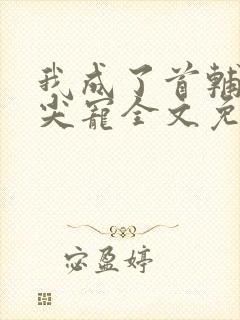 我成了首辅
尖宠全文免
宓盈婷